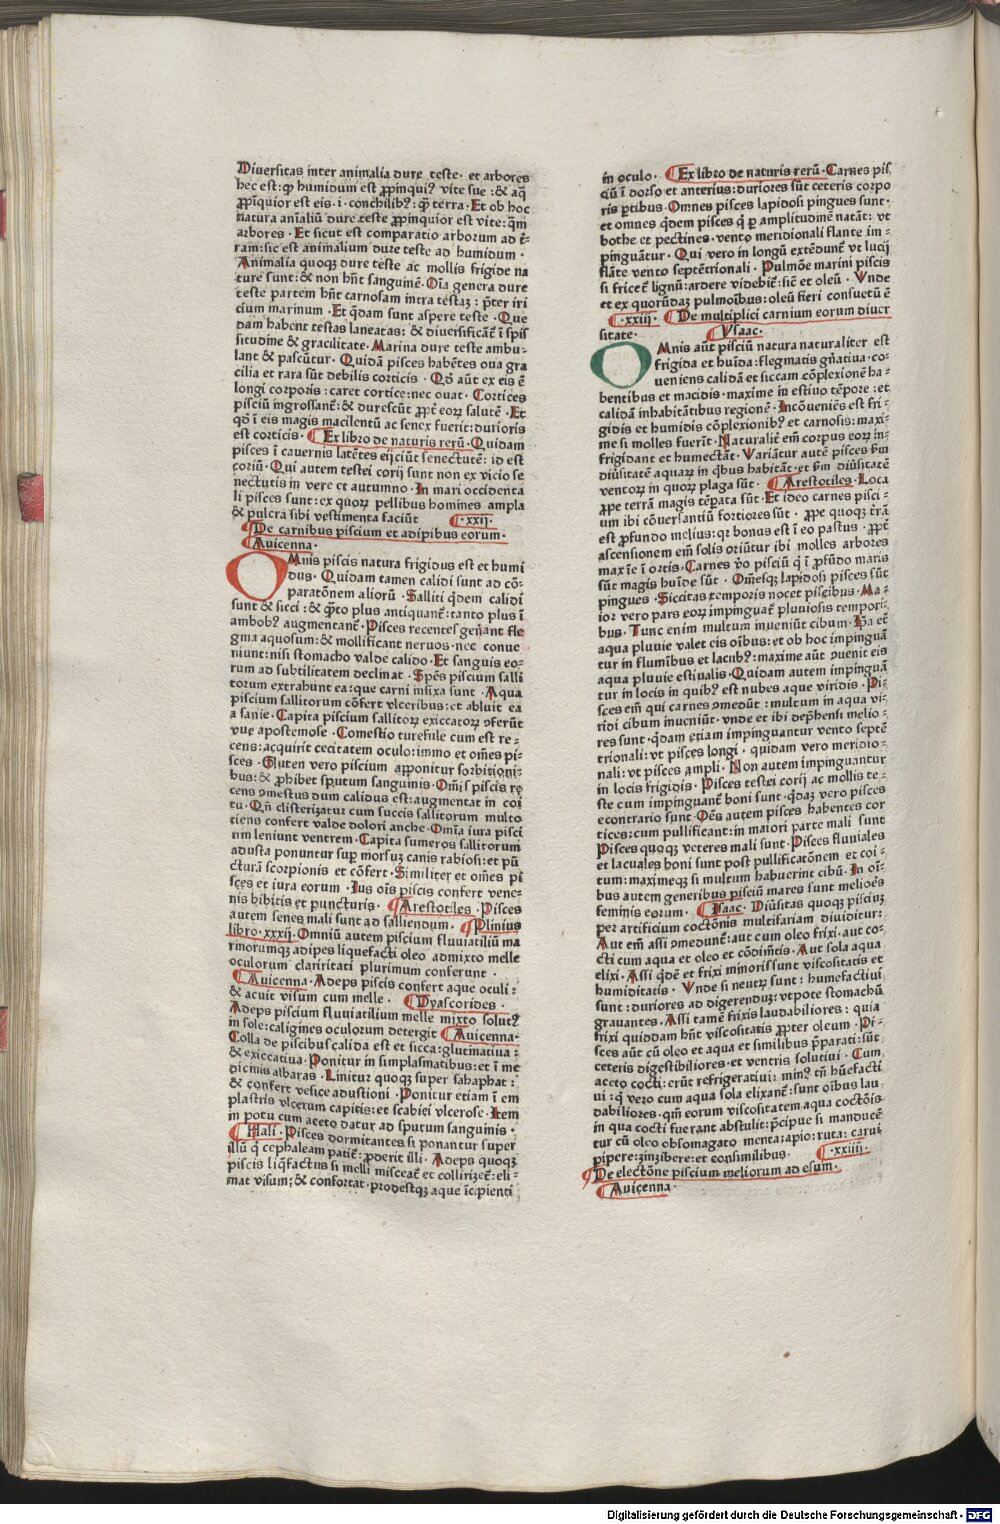 Diuersitas inter animalia dure teste· et arbores
hec est: ꝙ humidum est ꝓpinqui⁹ vite sue :& aq̃
ꝓpīquior est eis·i·conchilib⁹: q̃ꝫ terra·Et ob hoc
natura aīaliū dure teste ꝓpinquior est vite: q̃m
arbores·Et sicut est comparatio arborum ad t̃-
ram: sic est animalium dure teste ad humidum·
Animalia quoqꝫ dure teste ac mollis frigide na
ture sunt:& non hn̄t sanguinē·Oīa genera dure
teste partem hn̄t carnosam intra testaꝫ: p̄ter iri
cium marinum·Et q̄dam sunt aspere teste·Que
dam habent testas laneatas:& diuersificāt̃ ī spis
situdine & gracilitate·Marina dure teste ambu-
lant & pascūtur·Quidā pisces habētes oua gra
cilia et rara sūt debilis corticis·Qd̄ aūt ex eis ē
longi corporis: caret cortice: nec ouat·Cortices
pisciū ingrossant̃:& durescūt ꝓpt̃ eoꝝ salutē·Et
qd̄ ī eis magis macilentū ac senex fuerit: durioris
est corticis·Ex libro de naturis rerū·Quidam
pisces ī cauernis latētes eijciūt senectutē: id est
coriū·Qui autem testei corij sunt non ex vicio se
nectutis in vere et autumno·In mari occidenta
li pisces sunt: ex quoꝝ pellibus homines ampla
& pulcra sibi vestimenta faciūt ·xxij·
De carnibus piscium et adipibus eorum·
Auicenna·
OMnis piscis natura frigidus est et humi
dus·Quidam tamen calidi sunt ad cō-
paratōnem aliorū·Salliti q̄dem calidi
sunt & sicci:& q̃ꝫto plus antiquant̃: tanto plus ī
ambob⁹ augmentant̃·Pisces recentes gen̄ant fle
gma aquosum:& mollificant neruos· nec conue
niunt: nisi stomacho valde calido·Et sanguis eo-
rum ad subtilitatem declinat·Spēs piscium salli
torum extrahunt ea: que carni infixa sunt·Aqua
piscium sallitorum cōfert vlceribus: et abluit ea
a sanie·Capita piscium sallitoꝝ exiccatoꝝ ꝯferūt
vue apostemose·Comestio turefule cum est re-
cens: acquirit cecitatem oculo: immo et om̄es pi-
sces·Gluten vero piscium apponitur sorbitioni-
bus:& ꝓhibet sputum sanguinis·Om̄is piscis re
cens ꝯmestus dum calidus est: augmentat in coi
tu·Qn̄ clisterizatur cum succis sallitorum multo
tiens confert valde dolori anche·Om̄ia iura pisci
um leniunt ventrem·Capita sumeros sallitorum
adusta ponuntur suꝑ morsuꝫ canis rabiosi: et pū
cturā scorpionis et cōfert·Similiter et om̄es pi
sces et iura eorum·Ius oīs piscis confert vene-
nis bibitis et puncturis·Arestotiles·Pisces
autem senes mali sunt ad salliendum·Plinius
libro·xxxij·Omniū autem piscium fluuiatiliū ma
rinorumqꝫ adipes liquefacti oleo admixto melle
oculorum clariritati plurimum conferunt·
Auicenna·Adeps piscis confert aque oculi:
& acuit visum cum melle·Dyascorides·
Adeps piscium fluuiatilium melle mixto solut⁹
in sole: caligines oculorum detergit Auicenna·
Colla de piscibus calida est et sicca: glutinatiua:
& exiccatiua·Ponitur in simplasmatibus: et ī me
dicinis albaras·Linitur quoqꝫ super sahaphat:
& confert vesice adustioni·Ponitur etiam ī em
plastris vlcerum capitis: et scabiei vlcerose·Item
in potu cum aceto datur ad sputum sanguinis·
Hali·Pisces dormitantes si ponantur super
illū q̄ cephaleam patit̃: ꝓderit illi·Adeps quoqꝫ
piscis liq̄factus si melli misceat̃ et colliriꝫet̃: eli-
mat visum;& confortat· prodestqꝫ aque īcipienti
in oculo·Ex libro de naturis rerū·Carnes pis
ciū ī dorso et anterius: duriores sūt ceteris corpo
ris ꝑtibus·Omnes pisces lapidosi pingues sunt·
et omnes q̄dem pisces q̄ ꝑ amplitudinē natāt: vt
bothe et pectines· vento meridionali flante im-
pinguātur·Qui vero in longū extēdunt̃ vt lucij
flāte vento septētrionali·Pulmōe marini piscis
si fricet̃ lignū: ardere videbit̃: sic̄ et oleū·Vnde
et ex quorūdaꝫ pulmoībus: oleū fieri consuetū ē
·xxiij·De multiplici carnium eorum diuer
sitate·Ysaac·
OMnis aūt pisciū natura naturaliter est
frigida et huīda: flegmatis gn̄atiua· co-
ueniens calidā et siccam cōplexionē ha-
bentibus et macidis· maxime in estiuo tēpore: et
calidā inhabitātibus regionē·Incōueniēs est fri-
gidis et humidis cōplexionib⁹ et carnosis: maxi-
me si molles fuerīt·Naturalit̃ em̄ corpus eoꝝ in-
frigidant et humectāt·Variātur autē pisces ẜm
diūsitatē aquaꝝ in q̄bus habitāt· et ẜm diūsitatē
ventoꝝ in quoꝝ plaga sūt·Arestotiles·Loca
ꝓpe terrā magis tēperata sūt·Et ideo carnes pisci-
um ibi cōuersantiū fortiores sūt·ꝓpe quoqꝫ t̃rā
est ꝓfundo melius: qꝛ bonus est ī eo pastus·ꝓpt̃
ascensionem em̄ solis oriūtur ibi molles arbores
maxīe ī ortis·Carnes v̄o pisciū q̄ ī ꝓfūdo maris
sūt magis huīde sūt·Om̄esqꝫ lapidosi pisces sūt
pingues·Siccitas temporis nocet piscibus·Ma-
ior vero pars eoꝝ impinguat̃ pluuiosis tempori-
bus·Tunc enim multum inueniūt cibum·Ip̄a et̃
aqua pluuie valet eis oībus: et ob hoc impinguā
tur in flumībus et lacub⁹: maxime aūt ꝯuenit eis
aqua pluuie estiualis·Quidam autem impinguā
tur in locis in quib⁹ est nubes aque viridis·Pi-
sces em̄ qui carnes ꝯmedūt: multum in aqua vi-
ridi cibum inueniūt· vnde et ibi dep̄hensi melio-
res sunt·q̄dam etiam impinguantur vento septē
trionali: vt pisces longi· quidam vero meridio-
nali: vt pisces ampli·Non autem impinguantur
in locis frigidis·Pisces testei corij ac mollis te-
ste cum impinguant̃ boni sunt·q̄daꝫ vero pisces
econtrario sunt·Oēs autem pisces habentes cor
tices: cum pullificant: in maiori parte mali sunt
Pisces quoqꝫ veteres mali sunt·Pisces fluuiales
et lacuales boni sunt post pullificatōnem et coi-
tum: maximeqꝫ si multum habuerint cibū·In oī-
bus autem generibus pisciū mares sunt melioēs
feminis eorum·Isaac·Diūsitas quoqꝫ pisciuꝫ
peꝫ artificium coctōnis multifariam diuiditur:
Aut em̄ assi ꝯmedunt̃: aut cum oleo frixi· aut co-
cti cum aqua et oleo et cōdimtīs·Aut sola aqua
elixi·Assi q̄dē et frixi minoris sunt viscositatis et
humiditatis·Vnde si neutrꝫ sunt: humefactiui
sunt: duriores ad digerenduꝫ: vtpote stomachū
grauantes·Assi tamē frixis laudabiliores: quia
frixi quiddam hn̄t viscositatis ꝓpter oleum·Pi-
sces aūt cū oleo et aqua et similibus p̄parati: sūt
ceteris digestibiliores· et ventris solutiui·Cum
aceto cocti: erūt refrigeratiui: min⁹ tn̄ hūefacti
ui: q̄ vero cum aqua sola elixant̃: sunt oībus lau
dabiliores· qm̄ eorum viscositatem aqua coctōis
in qua cocti fuerant abstulit: p̄cipue si manducē
tur cū oleo obsomagato menta: apio: ruta: carui
pipere: zinzibere: et consimilibus· ·xxiiij·
De electōne piscium meliorum ad esum·
Auicenna·
Digitalisierung gefördert durch die Deutsche Forschungsgemeinschaft - DFG